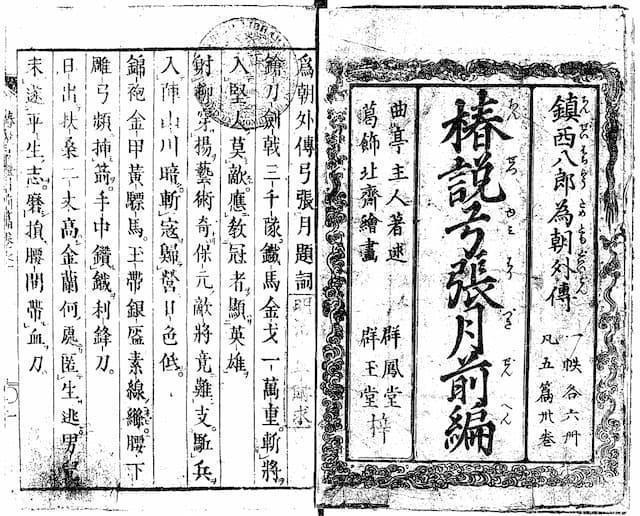 鎮西八郎為朝外傳
一帙各六冊
凡五篇卅巻
椿說弓張月前編
曲亭主人著述 群鳳堂
葛飾北齋繪畫 群玉堂 梓
為朝外傳弓張月題詞
鎗刀劍戟三千隊。鐵馬金戈一萬重。斬將
入堅人莫敵。應教冠者顯英雄。
射柳穿揚藝術奇。保元敵將竟難支。駈兵
入陣山川暗。斬寇歸營日色低。
錦袍金甲黃驃馬。玉帶銀盔素線縧。腰下
雕弓頻揷箭。手中鑽鐵利鋒刀。
日出扶桑二丈高。金蘭何處匿生逃。男
未遂平生志。磨損腰間帶血刀